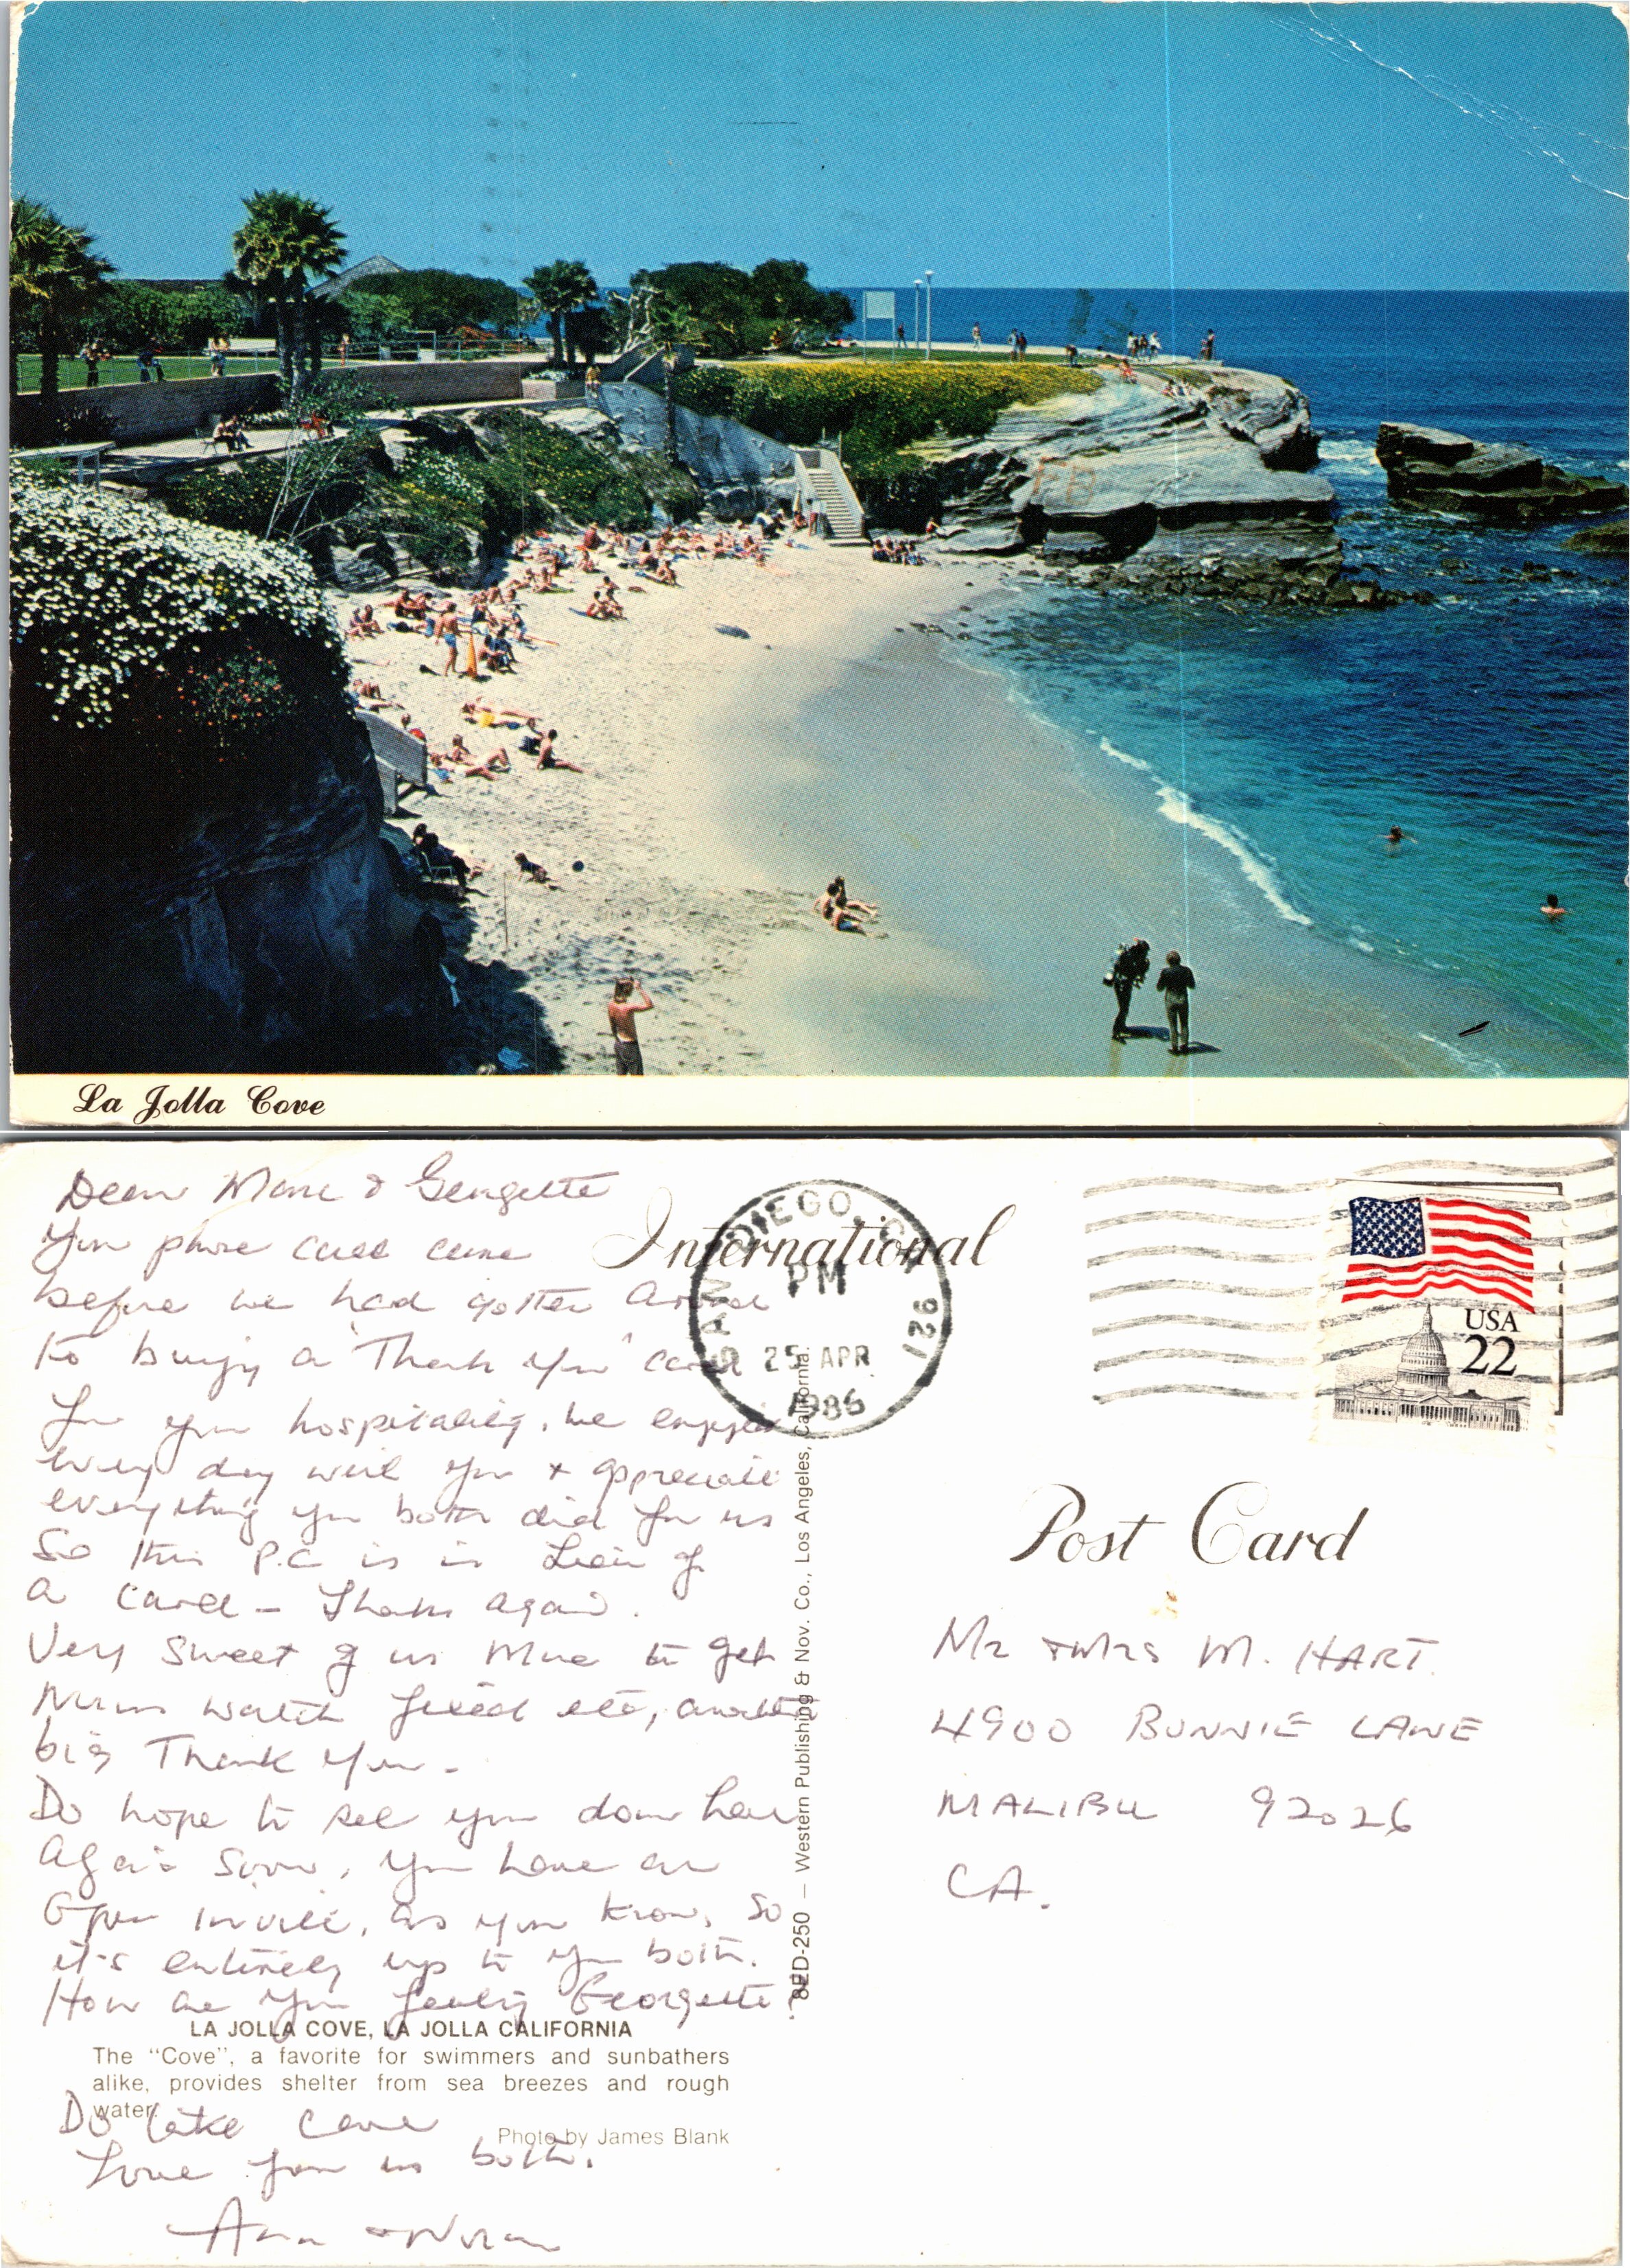 La Jolla Cove
Dear Marc & Georgette
Your phone call came
before we had gotten around
to buying a "Thank You" card
for your hospitality. We enjoyed
every day with you & appreciate
everything you both did for us
So this P.C is in Lein of
a card - Thanks again.
Very sweet of us Marc to get
Norms watch fixed etc, another
big Thank You -
Do hope to see you down here
Again soon, you have an
Open invite, as you know, so
it's entirely up to you both.
How are you feeling Georgette?
LA JOLLA COVE, LA JOLLA CALIFORNIA
The "Cove", a favorite for swimmers and sunbathers
alike, provides shelter from sea breezes and rough
water.
Photo by James Blank
Do take care
Love from us both.
Ann & Norm
8ED-250 — Western Publishing & Nov. Co., Los Angeles, California.
International
SAN DIEGO, CA 921
PM
25 APR
1986
USA
22
Post Card
Mr & Mrs M. HART.
4900 BONNIE LANE
MALIBU 92026
CA.